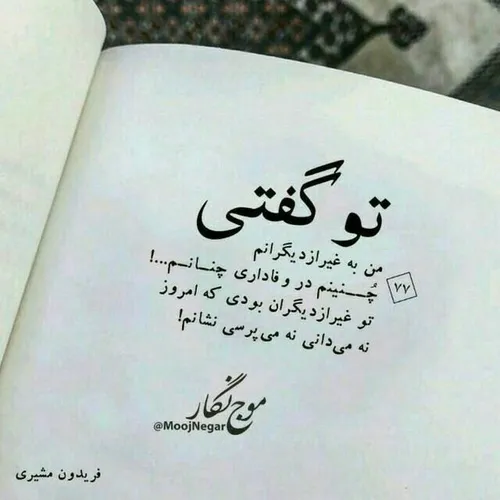 تو گفتی
من به غیرازدیگرانم
چُـنـینم در وفاداری چنـانـم...!
۷۷
تو غیرازدیگران بودی که امروز
نه می‌دانی نه می‌پرسی نشانم!
موج نگار
@MoojNegar
فریدون مشیری